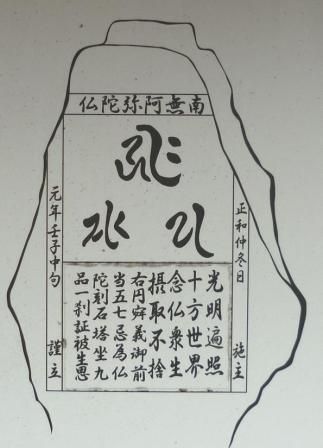 南無阿弥陀仏
正和仲冬日 施主
光明遍照
十方世界
念仏衆生
摂取不捨
右円舜義御前
当五七忌為仏
陀刻石塔坐九
品一刹証被生恩
元年壬子中旬 謹立